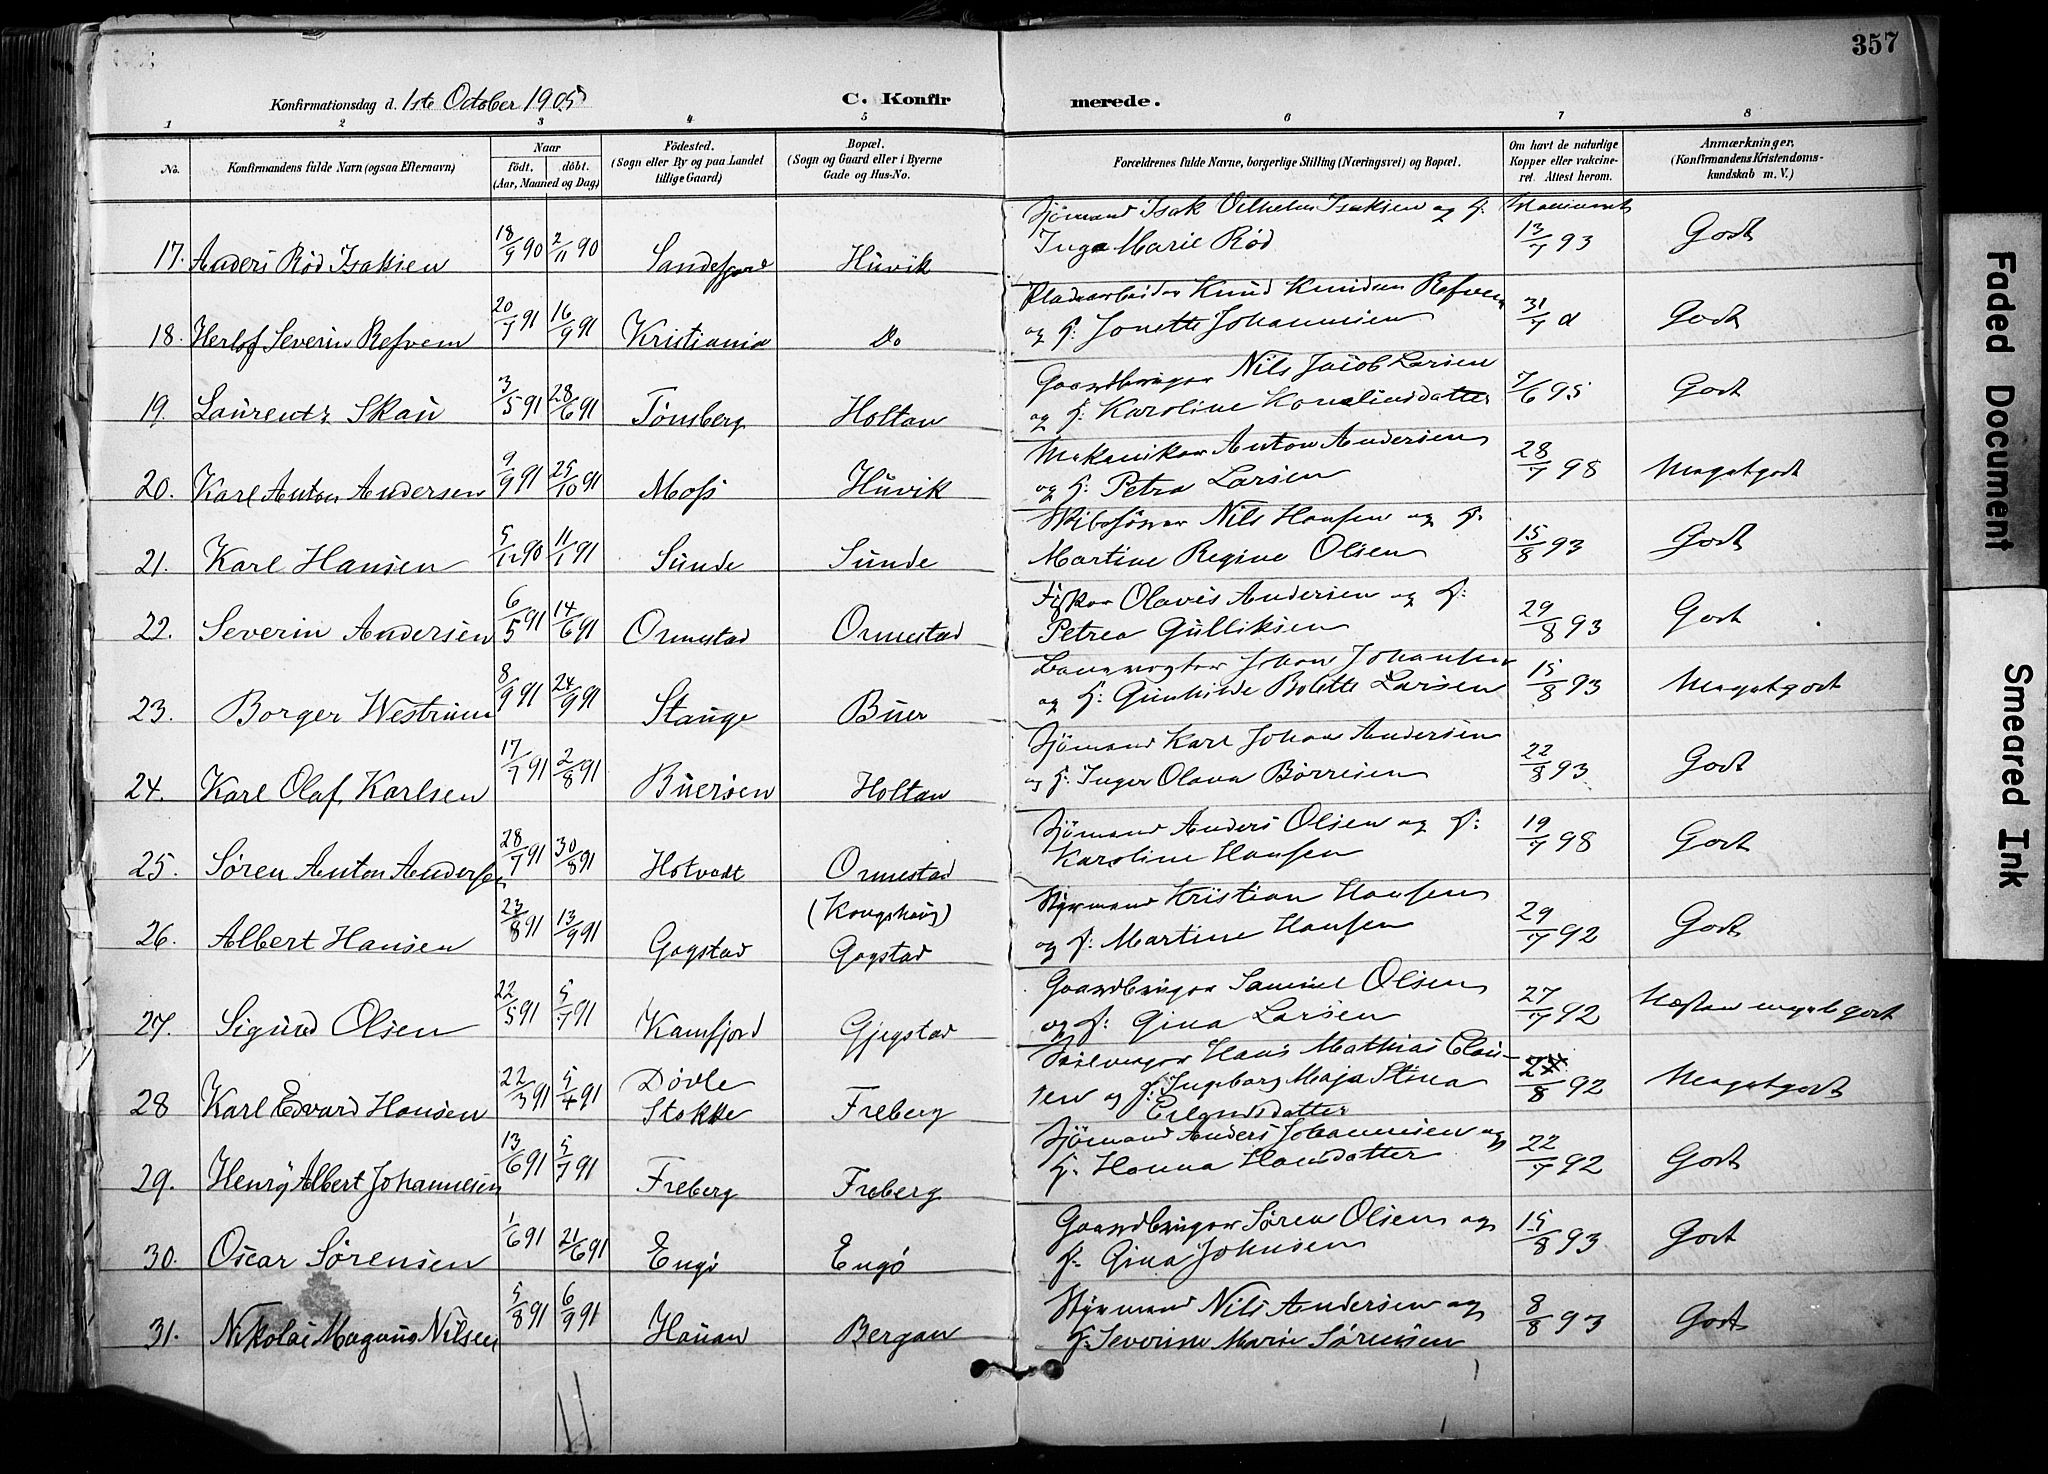 357
Konfirmationsdag d. 1ste October 1905
C. Konfirmerede.
1 2 3 4 5 6 7 8
No. Konfirmandens fulde Navn (ogsaa Efternavn) Naar Födt, döbt. (Aar, Maaned og Dag) Födested. (Sogn eller By og paa Landet tillige Gaard) Bopæl. (Sogn og Gaard eller i Byerne Gade og Hus-No. Forældrenes fulde Navne, borgerlige Stilling (Næringsvei) og Bopæl. Om havt de naturlige Kopper eller vakcineret. Attest herom. Anmærkninger, (Konfirmandens Kristendomskundskab m. V.)
17. Anders Rød Isaksen 18/9 90 2/11 90 Sandefjord Huvik Sjömand Isak Vilhelm Isaksen og H. Inga Marie Rød 13/7 93 Godt
18. Herlof Severin Refvem 20/7 91 16/9 91 Kristiania Do Pladearbeider Knud Knudsen Refvem og H: Jonette Johannesen 31/7 Godt
19. Laurentz Skau 3/5 91 28/6 91 Tönsberg Holtan Gaardbruger Nils Jacob Larsen og H: Karoline Korneliusdatter 7/6 95 Godt
20. Karl Anton Andersen 9/9 91 25/10 91 Moss Huvik Mekaniker Anton Andersen og H: Petra Larsen 28/7 98 Megetgodt
21. Karl Hansen 5/12 90 11/1 91 Sunde Sunde Skibsförer Nils Hansen og H. Martine Regine Olsen 15/8 93 Godt
22. Severin Andersen 6/5 91 14/6 91 Ormestad Ormestad Fisker Olavis Andersen og H: Petrea Gulliksen 29/8 93 Godt
23. Borger Westrum 8/9 91 24/9 91 Stange Buer Banevogter Johan Johansen og H: Gunhilde Bolette Larsen 15/8 93 Megetgodt
24. Karl Olaf Karlsen 17/7 91 2/8 91 Bueröen Holtan Sjömand Karl Johan Andersen og H: Inger Olava Börresen 22/8 93 Godt
25. Sören Anton Andersen 28/7 91 30/8 91 Hotvedt Ormestad Sjömand Anders Olsen og H: Karoline Hansen 19/7 98 Godt
26. Albert Hansen 23/8 91 13/9 91 Gogstad (Kongshaug) Gogstad Styrmand Kristian Hansen og H: Martine Hansen 29/7 92 Godt
27. Sigurd Olsen 22/5 91 5/7 91 Kamfjord Gjegstad Gaardbruger Samuel Olsen og H: Gina Larsen 27/7 92 Næsten meget godt
28 Karl Edvard Hansen 22/3 91 5/4 91 Dövle Stokke Freberg Hans Mathias Clausen og H: Ingeborg Maja Stina 8 92 Megetgodt
29. Henry Albert Johannesen 13/6 91 5/7 91 Freberg Freberg Sjömand Anders Johannesen og H. Hanna Hansdatter 22/7 92 Godt
30. Oscar Sörensen 1/6 91 21/6 91 Engö Engö Gaardbruger Sören Olsen og H. Gina Johnsen 15/8 93 Godt
31. Nikolai Magnus Nilsen 5/8 91 6/9 91 Hauan Bergan Styrmand Nils Andersen og H. Severine Marie Sörensen 8/8 93 Godt
Faded Document
Smeared Ink